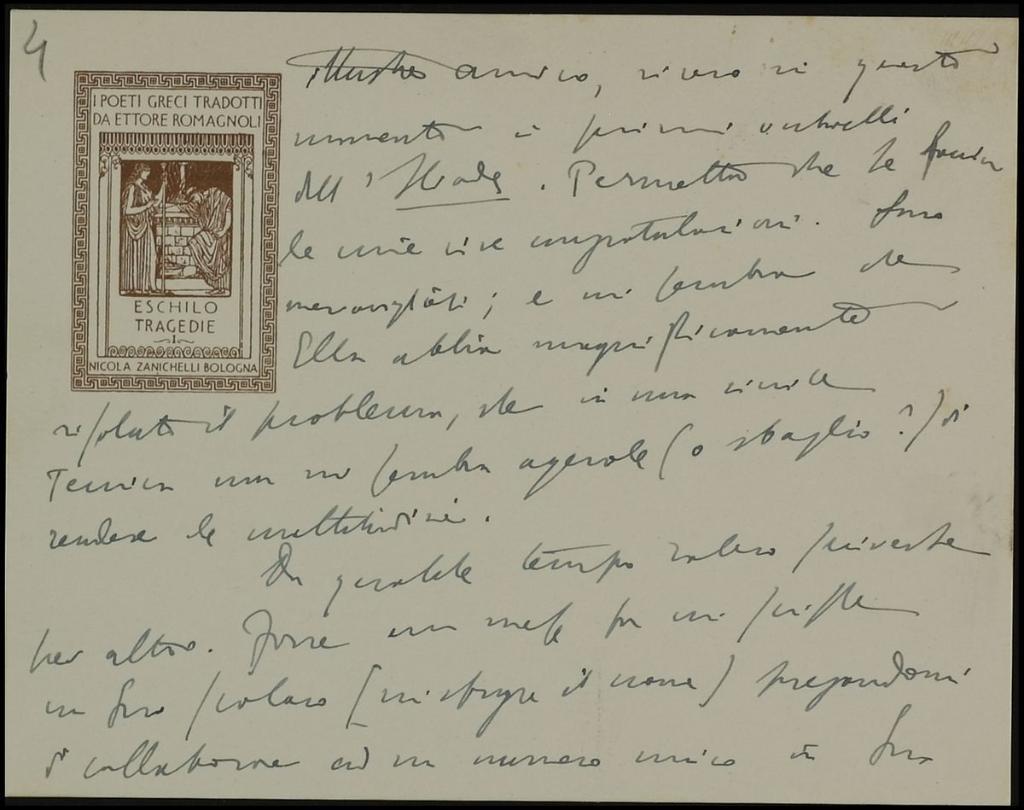 4
I POETI GRECI TRADOTTI
DA ETTORE ROMAGNOLI
ESCHILO
TRAGEDIE
I
NICOLA ZANICHELLI BOLOGNA
Illustre amico, ricevo in questo
momento i primi
dell'Iliade. Permetta che Le faccia
le mie vive congratulazioni. Sono
meravigliosi; e mi sembra che
Ella abbia magnificamente
risoluto il problema, che in una simile
tecnica non mi sembra agevole (o sbaglio?) di
rendere le moltitudini.
Da qualche tempo volevo scriverle
per altro. Forse un mese fa mi scrisse
un Suo scolaro (mi sfugge il nome) pregandomi
di collaborare ad un numero unico in Suo